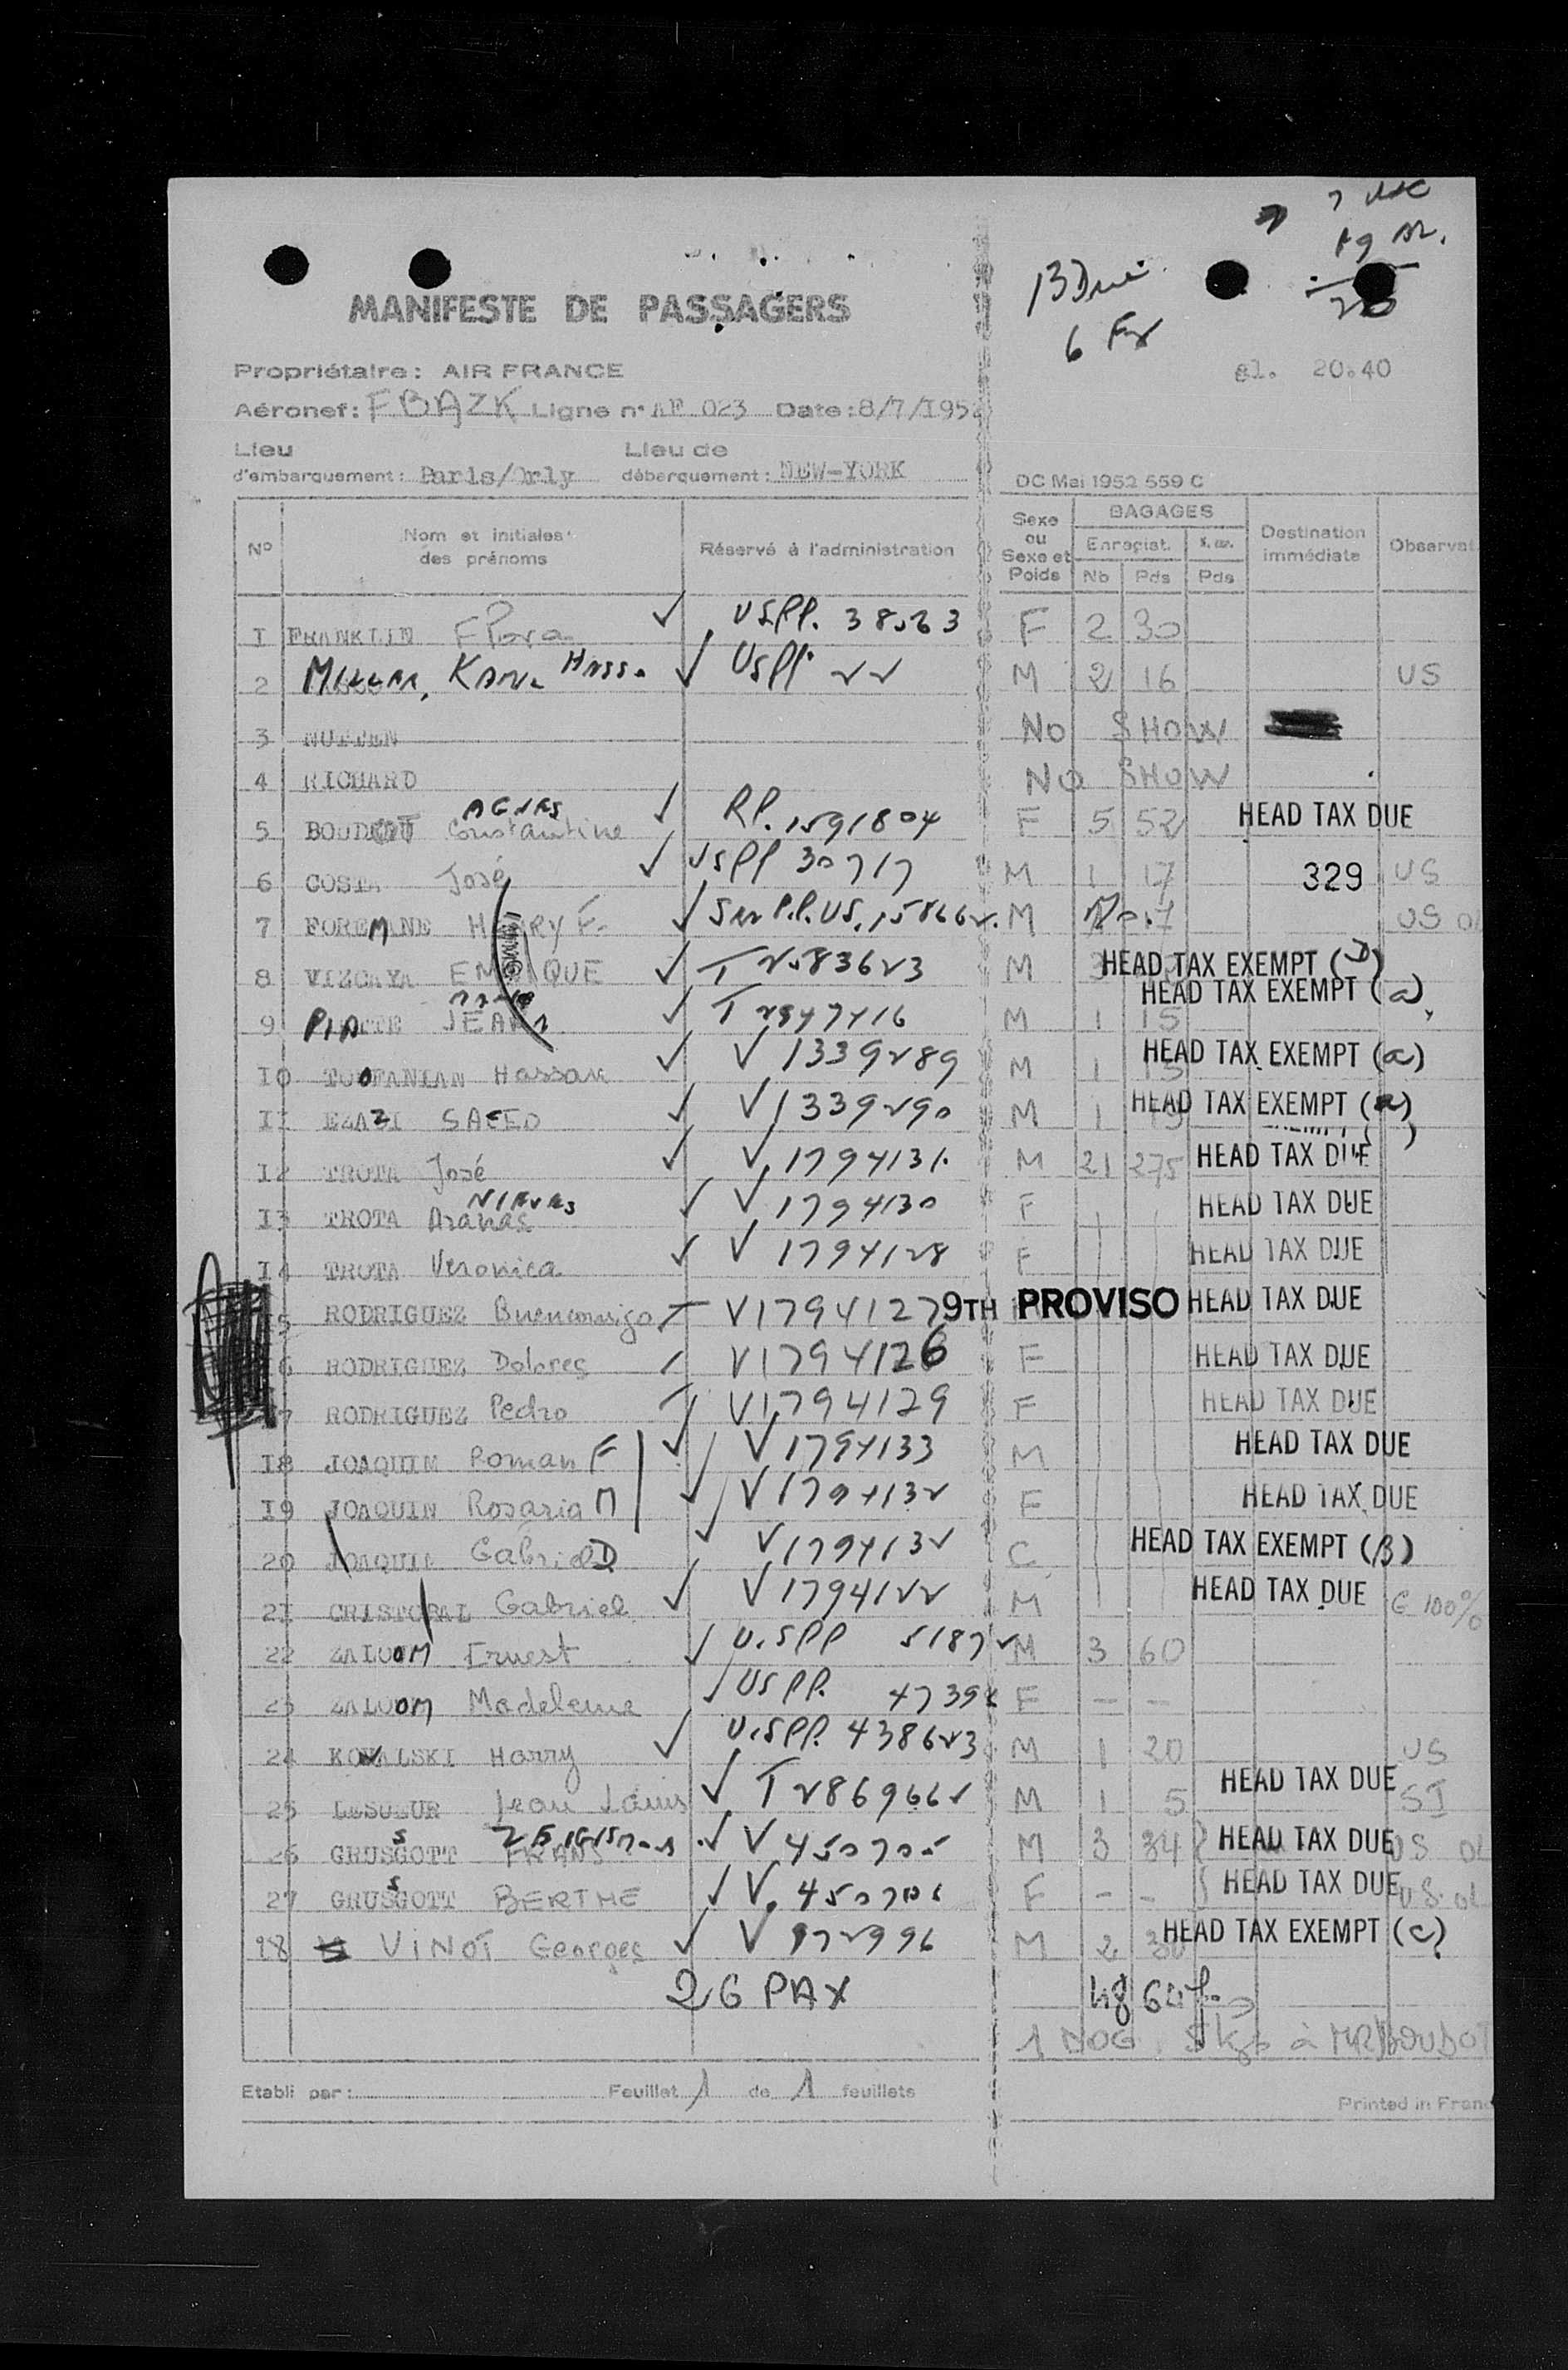 MANIFESTE DE PASSAGERS
13 Due
6 Ex
Propriétaire: AIR FRANCE
20.40
Aéronef: FBAZK Ligne n° AF 023 Date: 8/7/1952
Lieu d'embarquement: Paris/Orly Lieu de débarquement: NEW-YORK
DC Mai 1952 559 C
N° Nom et initiales des prénoms Réservé à l'administration Sexe ou Sexe et Poids BAGAGES Enregist. Nb Pds Pds Destination immédiate Observat
1 FRANKLIN Flora ✓ USPP. F 2 30
2 ✓ USPP M 2 16 US
3 NUTTEN NO SHOW
4 RICHARD NO SHOW
5 BOUDOT Constantine AGNES ✓ RP. 1591804 F 5 52 HEAD TAX DUE
6 COSTA José ✓ USPP 30717 M 1 17 329 US
7 FOREMANE HARRY F. ✓ M US
8 VIZCAYA ✓ T M HEAD TAX EXEMPT (D)
9 JEAN ✓ T M 1 15 HEAD TAX EXEMPT (a)
10 TOOFANIAN Hassan ✓ V 1339289 M 1 15 HEAD TAX EXEMPT (a)
11 EZAZI SAEED ✓ V 1339290 M 1 HEAD TAX EXEMPT (a)
12 TROTA José ✓ V 1794131 M 21 275 HEAD TAX DUE
13 TROTA Aranas NIEVES ✓ V 1794130 F HEAD TAX DUE
14 TROTA Veronica ✓ V 1794128 F HEAD TAX DUE
15 RODRIGUEZ V1794127 9TH PROVISO HEAD TAX DUE
16 RODRIGUEZ Dolores V1794126 F HEAD TAX DUE
17 RODRIGUEZ Pedro V1794129 F HEAD TAX DUE
18 JOAQUIN Roman F ✓ V 1794133 M HEAD TAX DUE
19 JOAQUIN Rosaria M ✓ V 1794132 F HEAD TAX DUE
20 JOAQUIN Gabriel D ✓ V 1794132 C HEAD TAX EXEMPT (B)
21 CRISTOBAL Gabriel ✓ V 1794122 M HEAD TAX DUE G 100%
22 ZALOOM Ernest ✓ U.SPP 51872 M 3 60
23 ZALOOM Madeleine ✓ USPP. F - -
24 KOWALSKI Harry ✓ U.SPP. 438623 M 1 20 US
25 LESUEUR Jean Louis ✓ T 2869662 M 1 5 HEAD TAX DUE SI
26 GRUSGOTT FRANS ✓ V 450705 M 3 34 HEAD TAX DUE US OL
27 GRUSGOTT BERTHE ✓ V. F - - HEAD TAX DUE U.S. OL
28 VINOT Georges ✓ V 972996 M 2 30 HEAD TAX EXEMPT (C)
26 PAX 48
1 DOG 5 kgs à MR BOUDOT
Etabli par: Feuillet 1 de 1 feuillets
Printed in Fran